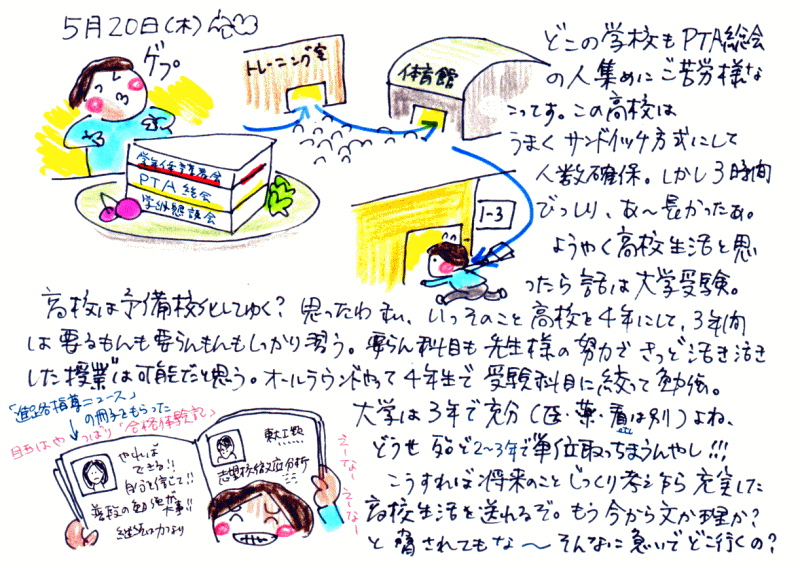 5月20日(木)
ゲプ
トレーニング室
体育館
学年保事委員会
PTA総会
学級懇談会
1-3
どこの学校もPTA総会
の人集めにご苦労様な
こってす。この高校は
うまくサンドイッチ方式にして
人数確保。しかし3時間
びっしり、あ〜長かったぁ。
ようやく高校生活と思
ったら話は大学受験。
高校は予備校化してゆく? 思ったわすい、いっそのこと高校を4年にして、3年間
は要るもんも要らんもんもしっかり習う。要らん科目も先生様の努力できっと活き活き
した授業は可能だと思う。オールラウンドやって4年生で受験科目に絞って勉強。
大学は3年で充分(医・薬・看は別)よね、
どうせ殆ど2〜3年で単位取っちまうんやし!!!
こうすれば将来のことじっくり考えながら充実した
高校生活を送れるぞ。もう今から文か理か?
と脅されてもな〜そんなに急いでどこ行くの?
「進路指導ニュース」
の冊子をもらった
目はや
っぱり「合格体験記」
やれば
できる!!
自分を信じて!!
普段の勉強が
大事!!
継続は力なり
東大工類
志望校徹底分析
えーなー えーなー